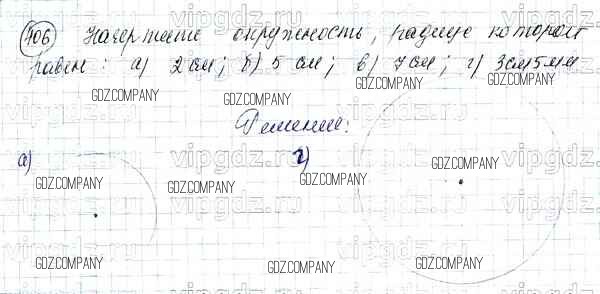 406 Начертите окружность, радиус которой
равен: а) 2 см; б) 5 см; в) 7 см; г) 3 см 5 мм
GDZ.COMPANY GDZ.COMPANY GDZ.COMPANY GDZ.COMPANY
vipgdz.ru vipgdz.ru vipgdz.ru
Решение:
а) г)
GDZ.COMPANY GDZ.COMPANY GDZ.COMPANY GDZ.COMPANY
vipgdz.ru vipgdz.ru vipgdz.ru
GDZ.COMPANY GDZ.COMPANY GDZ.COMPANY